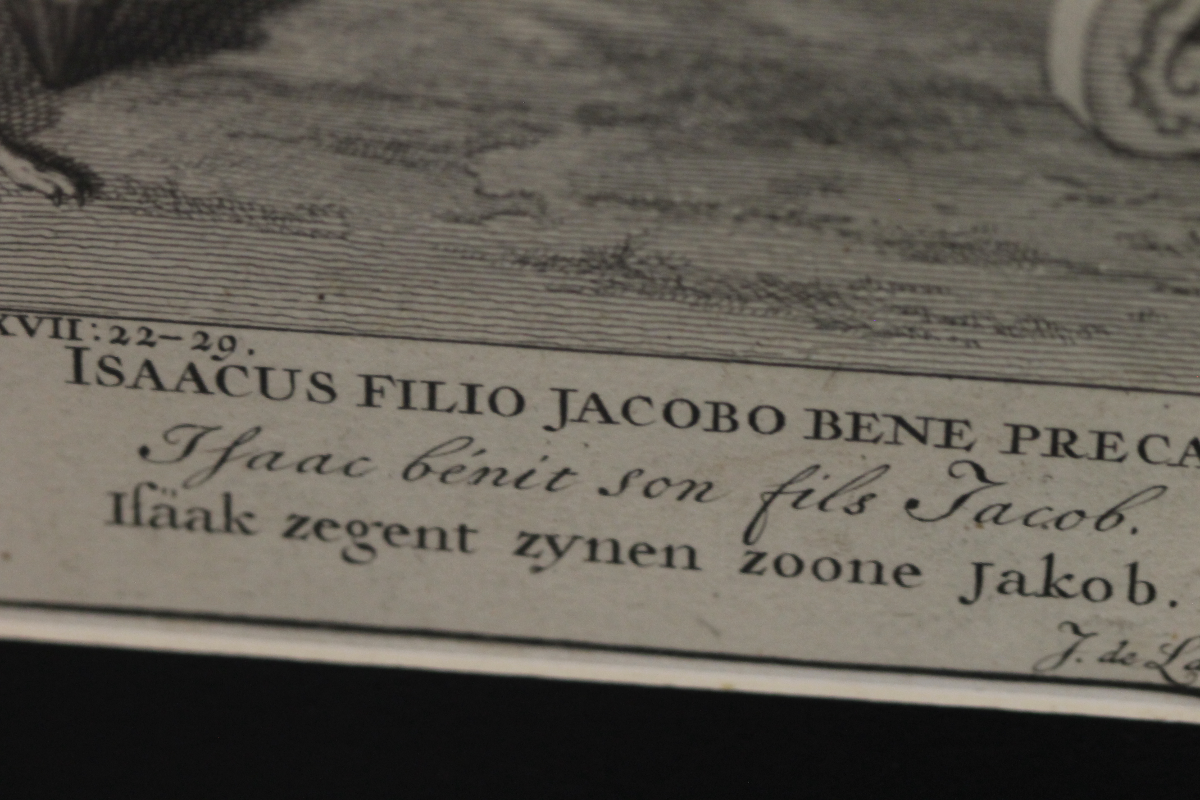 XVII: 22-29.
ISAACUS FILIO JACOBO BENE PRECA
Iſaac bénit son fils Jacob.
Iſäak zegent zynen zoone Jakob.
J. de La